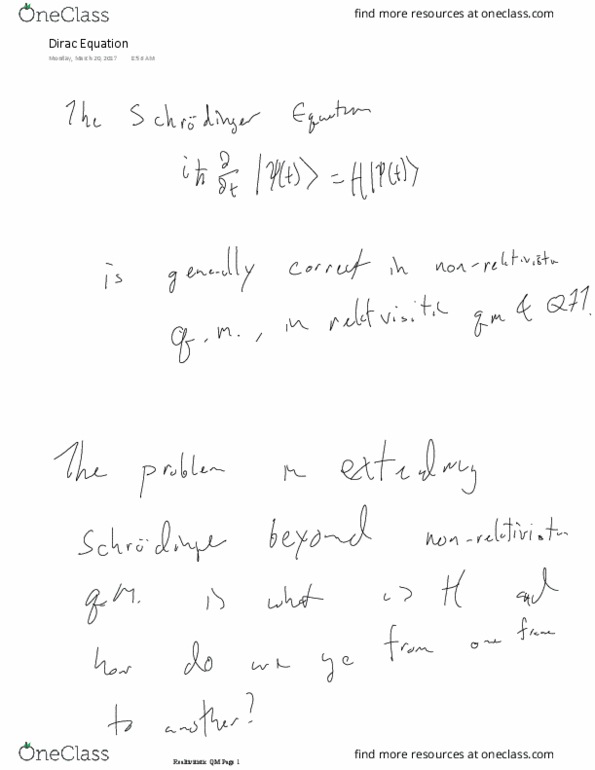 OneClass find more resources at oneclass.com
Dirac Equation
Monday, March 20, 2017 8:58 AM
The Schrödinger Equation
iħ ∂/∂t |Ψ(t)⟩ = H|Ψ(t)⟩
is generally correct in non-relativistic
q.m., in reltvisitic qm & QFT.
The problem in extending
Schrödinger beyond non-relativistic
q.M. is what is H and
how do we go from one frame
to another?
OneClass find more resources at oneclass.com
Realtivistic QM Page 1